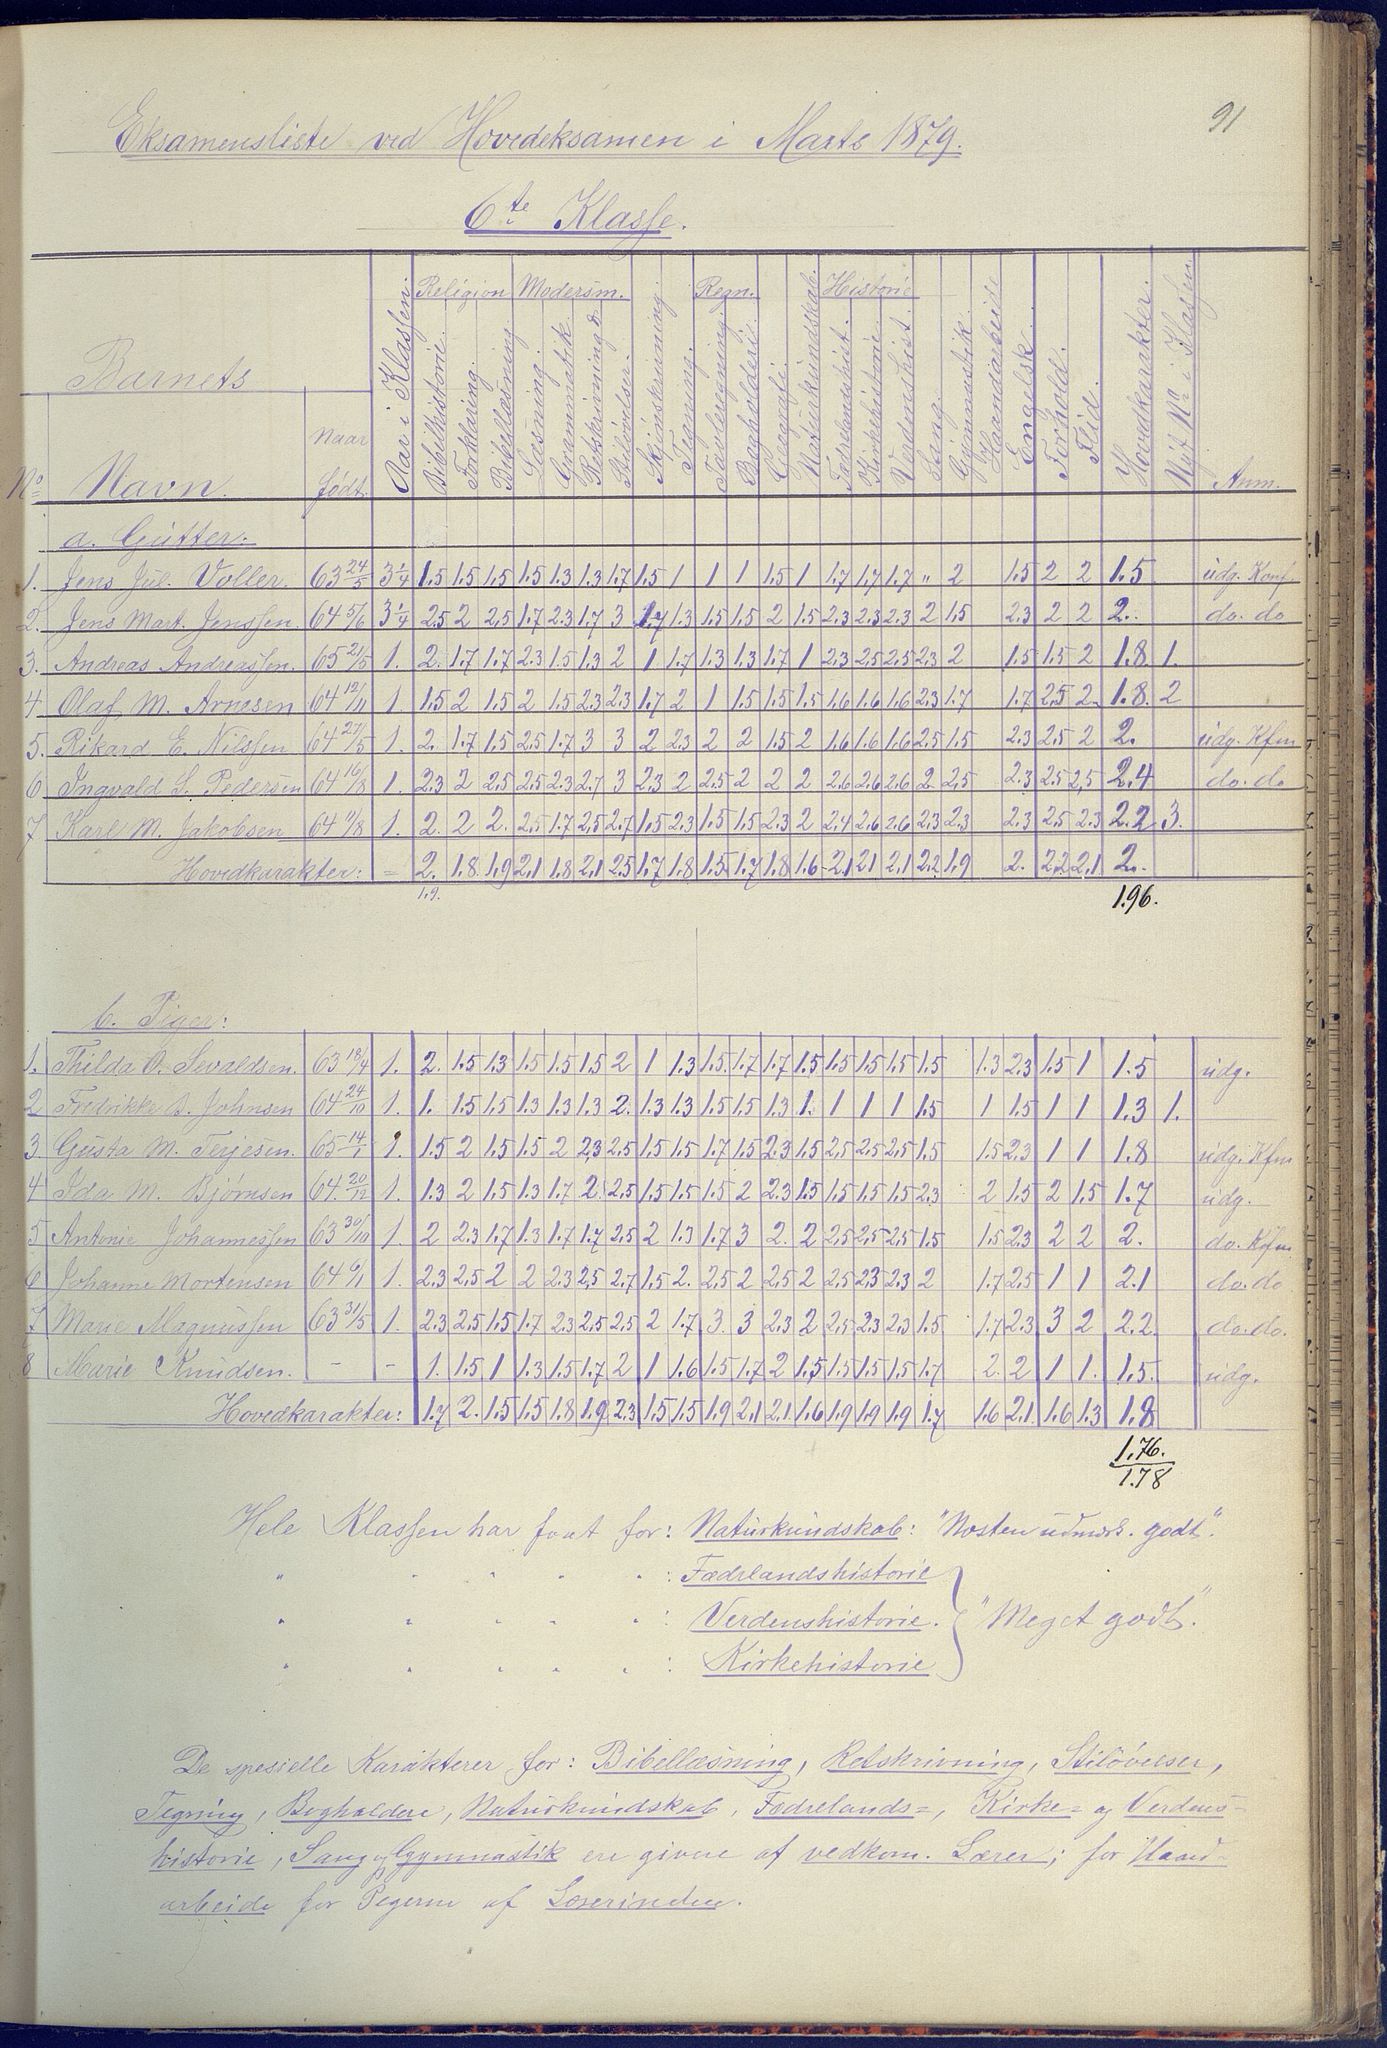 91
Eksamensliste ved Hovedeksamen i Marts 1879.
6te Klasse.
Barnets
No Navn. Naar født. Aar i Klassen. Religion Bibelhistorie. Forklaring. Bibellæsning Modersm. Læsning. Grammatik. Retskrivning Stiløvelser. Skjönskrivning. Tegning. Regn. Tavleregning. Bogholderi. Geografi. Naturkundskab. Historie Fædrelandshist. Kirkehistorie. Verdenshist. Sang. Gymnastik. Haandarbeide Engelsk. Forhold. Flid. Hovedkarakter. Nyt No i Klassen. Anm.
a. Gutter:
1. Jens Jul. Voller. 63 24/5 3 1/4 1.5 1.5 1.5 1.5 1.3 1.3 1.7 1.5 1 1 1 1.5 1 1.7 1.7 1.7 " 2 1.5 2 2 1.5 udg. Konf
2. Jens Mart. Jenssen. 64 5/6 3 1/4 2.5 2 2.5 1.7 2.3 1.7 3 1.7 1.3 1.5 1.5 2 1.5 2.3 2.3 2.3 2 1.5 2.3 2 2 2. do. do
3. Andreas Andreassen. 65 21/5 1. 2. 1.7 1.7 2.3 1.5 1.3 2 1 1.7 1.3 1.3 1.7 1 2.3 2.5 2.5 2.3 2 1.5 1.5 2 1.8. 1.
4 Olaf M. Arnesen 64 12/11 1. 1.5 2 1.5 2 1.5 2.3 2.3 1.7 2 1 1.5 1.5 1.5 1.6 1.6 1.6 2.3 1.7 1.7 2.5 2. 1.8. 2
5. Rikard E. Nilssen 64 27/5 1. 2. 1.7 1.5 2.5 1.7 3 3 2 2.3 2 2 1.5 2 1.6 1.6 1.6 2.5 1.5 2.3 2.5 2 2. udg. Kfm
6 Ingvald S. Pedersen 64 16/8 1. 2.3 2 2.5 2.5 2.3 2.7 3 2.3 2 2.5 2 2 2 2.6 2.6 2.6 2. 2.5 2.3 2.5 2.5 2.4 do. do
7 Karl M. Jakobsen 64 11/8 1. 2. 2 2. 2.5 1.7 2.5 2.7 1.5 2.3 1.5 1.5 2.3 2 2.4 2.6 2.6 2.3 2.3 2.3 2.5 2.3 2.2 3.
Hovedkarakter: = 2. 1.8. 1.9 2.1 1.8 2.1 2.5 1.7 1.8 1.5 1.7 1.8 1.6 2.1 2.1 2.1 2.2 1.9 2. 2.2 2.1 2.
1.9. 1.96.
b. Piger:
1. Thilda O. Sevaldsen. 63 18/4 1. 2. 1.5 1.3 1.5 1.5 1.5 2 1 1.3 1.5. 1.7 1.7 1.5 1.5 1.5 1.5 1.5 1.3 2.3 1.5 1 1.5 udg.
2 Fredrikke S. Johnsen 64 24/10 1. 1. 1.5 1.5 1.3 1.3 1.3 2. 1.3 1.3 1.5 1.5 1.3 1. 1 1 1 1.5 1 1.5 1 1 1.3 1.
3 Gusta M. Terjesen. 65 14/1 1. 1.5 2 1.5 1.5 2 2.3 2.5 1.5 1.5 1.7 1.5 2.3 1.5 2.5 2.5 2.5 1.5 1.5 2.3 1 1 1.8 udg. Kfm
4 Ida M. Bjørnsen 64. 20/12 1. 1.3 2 1.5 1.3 1.7 2 2.5 1.5 1.5 1.5 2 2.3 1.5 1.5 1.5 1.5 2.3 2 1.5 2 1.5 1.7 udg.
5 Antonie Johannessen 63 30/10 1. 2 2.3 1.7 1.3 1.7 1.7 2.5 2 1.3 1.7 3 2. 2 2.5 2.5 2.5 1.5 1.5 2.3 2 2 2. do. Kfm
6 Johanne Mortensen 64 6/1 1. 2.3 2.5 2 2 2.3 2.5 2.7 1.5 2. 2.5 2 2.5 2 2.5 2.3 2.3 2 1.7 2.5 1 1 2.1 do. do
7 Marie Magnussen 63 31/5 1. 2.3 2.5 1.5 1.7 2.3 2.5 2.5 2 1.7 3. 3 2.3 2 2.5 2.3 2.3 1.5 1.7 2.3 3 2 2.2. do. do.
8 Marie Knudsen. - - 1. 1.5 1 1.3 1.5 1.7 2 1 1.6 1.5 1.7 2 1.5 1.5 1.5 1.5 1.7 2. 2 1 1. 1.5. udg.
Hovedkarakter: 1.7 2. 1.5 1.5 1.8 1.9 2.3 1.5 1.5 1.9 2.1 2.1 1.6 1.9 1.9 1.9 1.7 1.6 2.1. 1.6 1.3 1.8
1.76.
1.78
Hele Klassen har faat for: Naturkundskab: "Næsten udmærk. godt".
" " " " " : Fædrelandshistorie
" " " " " : Verdenshistorie. "Meget godt".
" " " " " : Kirkehistorie
De spesielle Karakterer for: Bibellæsning, Retskrivning, Stiløvelser,
Tegning, Bogholderi, Naturkundskab, Fædrelands=, Kirke= og Verdens-
historie, Sang og Gymnastik ere givne af vedkom. Lærer; for Haand-
arbeide for Pigerne af Lærerinden.